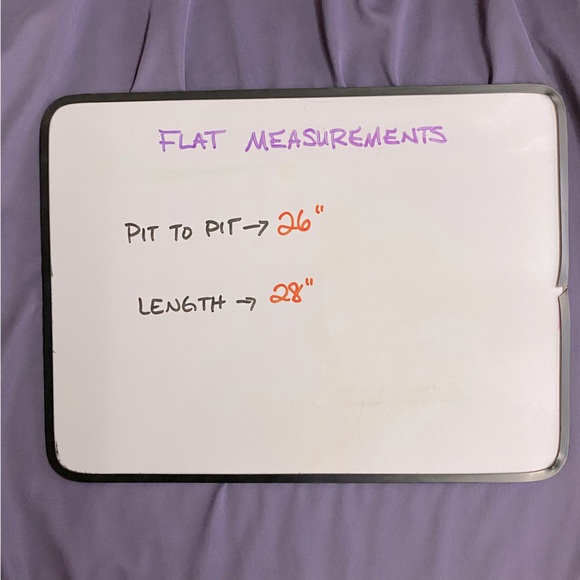 FLAT MEASUREMENTS
PIT TO PIT → 26"
LENGTH → 28"